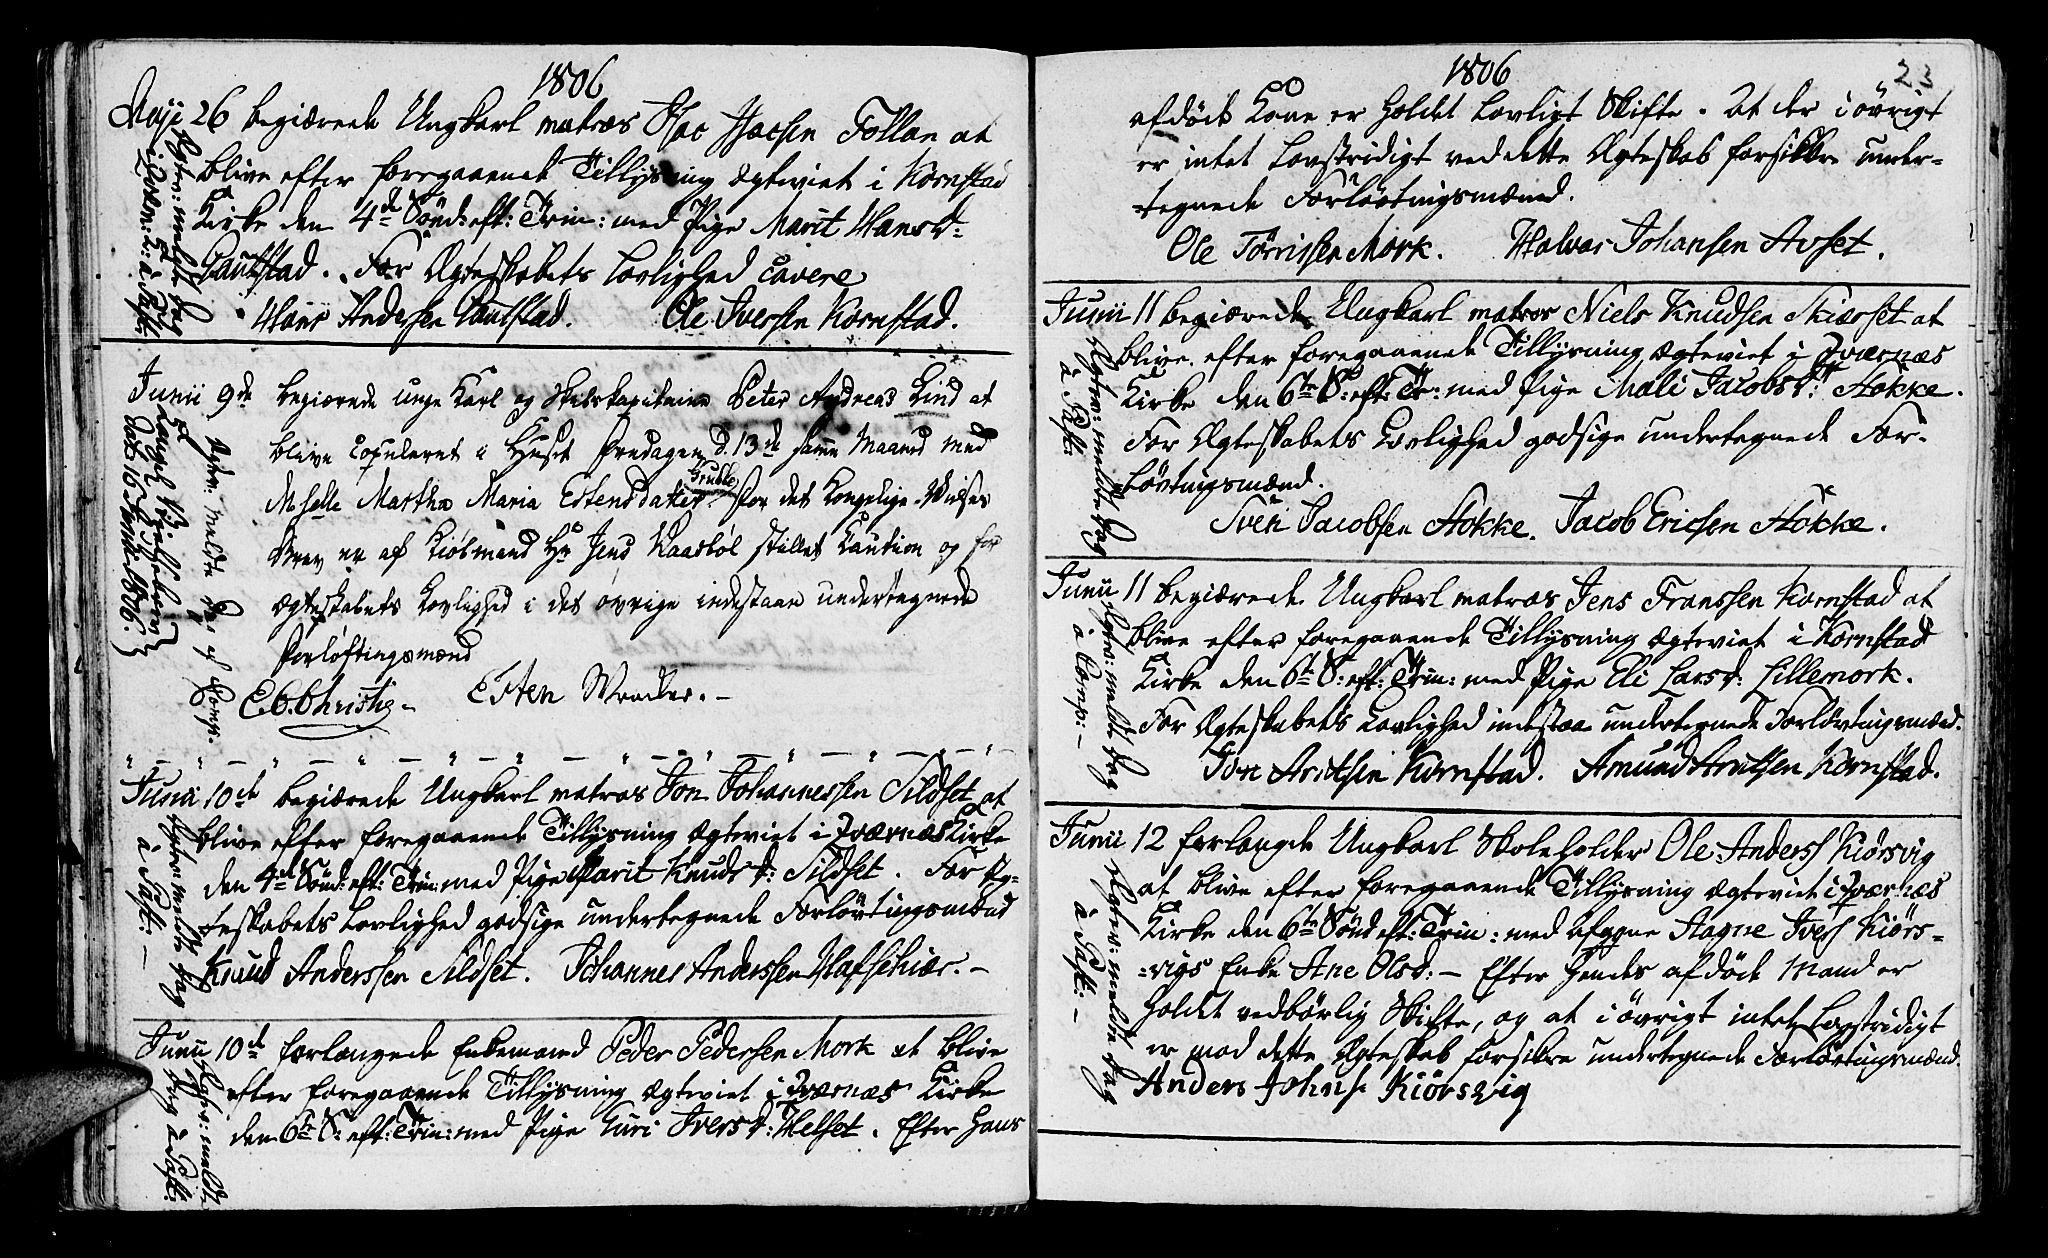 1806
Maji 26 begiærede Ungkarl matros Isac Isacsen Follan at
blive efter foregaaende Tillysning ægteviet i Kornstad
Kirke den 4de Sönd: eft: Trin: med Pige Marit Hansd:
Gautstad. For Ægteskabets Lovlighed cavere
Hans Andersen Gautstad. Ole Iversen Kornstad.
Ægtev: meldte Dag
Junii 9de begiærede unge Karl og Skibskapitaine Peter Andreas Lind at
blive copuleret i Huset Fredagen d. 13de samme Maaned med
Mselle Martha Maria Estensdatter. For det Kongelige
Brev er af Kiöbmand Hr Jens Kaasböl stillet Caution og for
Ægteskabets Lovlighed i det övrige indestaae undertegnede
Forlöftingsmænd
C. C. Christie. Esten
Ægtev: meldte Dag af Comp:
dat 1806.
Junii 10de begiærede Ungkarl matros Jon Johannessen Sildset at
blive efter foregaaende Tillysning ægteviet i Qværnæs Kirke
den 4de Sönd: eft: Trin: med Pige Marit Knudsd: Sildset. For Æg-
teskabets Lovlighed godsige undertegnede Forlövtingsmænd
Knud Anderssen Sildset. Johannes Anderssen Hafschiær.
Ægtev: meldte Dag
à Past:
Junii 10de forlangede Enkemand Peder Pedersen Mork at blive
efter foregaaende Tillysning ægteviet i Qværnæs Kirke
den 6te S: eft: Trin: med Pige Guri Iversd: Helset. Efter Hans
Ægtev: meldte
Dag à Past:
1806
23
afdöde Kone er holdet Lovligt Skifte. At der i övrigt
er intet Lovstridigt ved dette Ægteskab forsikkre under-
tegnede Forlövtingsmænd.
Ole Törrissen Mork. Halvar Johansen Avset.
Junii 11 begiærede Ungkarl matros Niels Knudsen Skiærset at
blive efter foregaaende Tillysning ægteviet i Qværnæs
Kirke den 6te S: eft: Tr: med Pige Mali Jacobsd: Stokke.
For Ægteskabets Lovlighed godsige undertegnede For-
lövtingsmænd.
Sven Jacobsen Stokke. Jacob Ericsen Stokke.
Ægtev: meldte Dag
à Past:
Junii 11 begiærede Ungkarl matros Jens Franssen Kornstad at
blive efter foregaaende Tillysning ægteviet i Kornstad
Kirke den 6te S: eft: Trin: med Pige Eli Larsd: Lillemork.
For Ægteskabets Lovlighed indestaa undertegnede Forlövtingsmænd.
Jon Arntsen Kornstad. Amund Arntsen Kornstad.
Ægtev: meldte Dag
à Comp:
Junii 12 forlangede Ungkarl Skoleholder Ole Anders: Kiörsvig
at blive efter foregaaende Tillysning ægteviet i Qværnæs
Kirke den 6te Sönd eft: Trin: med afgangne Aagne Ivers: Kiörs-
vigs Enke Ane Olsd: Efter Hendes afdöde Mand er
holdet vedbörlig Skifte, og at i övrigt intet Lovstridigt
er mod dette Ægteskab forsikre undertegnede Forlövtingsmænd.
Anders Johns: Kiörsvig
Ægtev: meldte Dag
à Past: